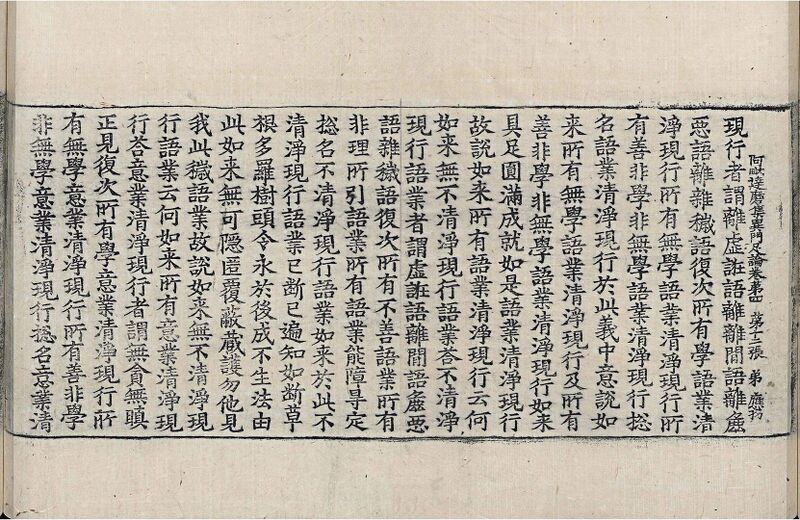 阿毗達磨集異門足論卷第四　第十二張　弟
現行者謂離虛誑語離離間語離麁
惡語離雜穢語復次所有學語業清
淨現行所有無學語業清淨現行所
有善非學非無學語業清淨現行揔
名語業清淨現行於此義中意說如
來所有無學語業清淨現行及所有
善非學非無學語業清淨現行如來
具足圓滿成就如是語業清淨現行
故說如來所有語業清淨現行云何
如來無不清淨現行語業荅不清淨
現行語業者謂虛誑語離間語麁惡
語雜穢語復次所有不善語業所有
非理所引語業所有語業能障㝵定
揔名不清淨現行語業如來於此不
清淨現行語業已斷已遍知如斷草
根多羅樹頭令永於後成不生法由
此如來無可隱匿覆蔽藏護勿他見
我此穢語業故說如來無不清淨現
行語業云何如來所有意業清淨現
行荅意業清淨現行者謂無貪無瞋
正見復次所有學意業清淨現行所
有無學意業清淨現行所有善非學
非無學意業清淨現行揔名意業清